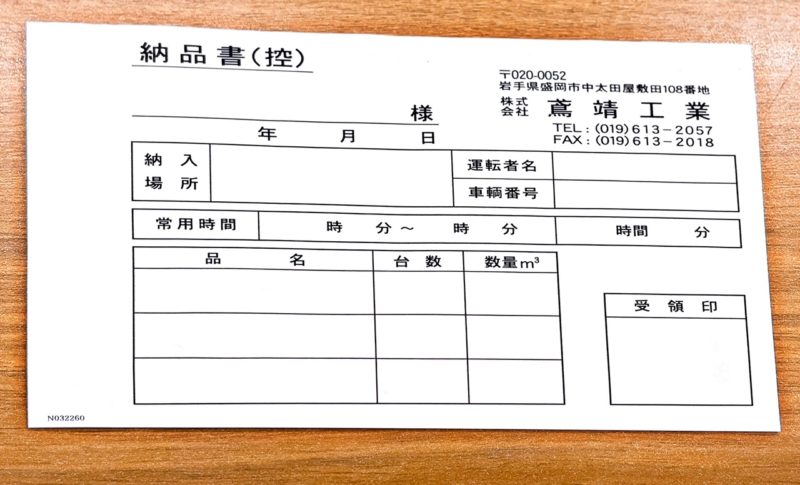 納品書(控)
〒020-0052
岩手県盛岡市中太田屋敷田108番地
株式会社 鳶靖工業
様
TEL:(019)613-2057
年 月 日
FAX:(019)613-2018
納入場所
運転者名
車輌番号
常用時間 時 分～ 時 分 時間 分
品 名 台 数 数量m³
受 領 印
N032260